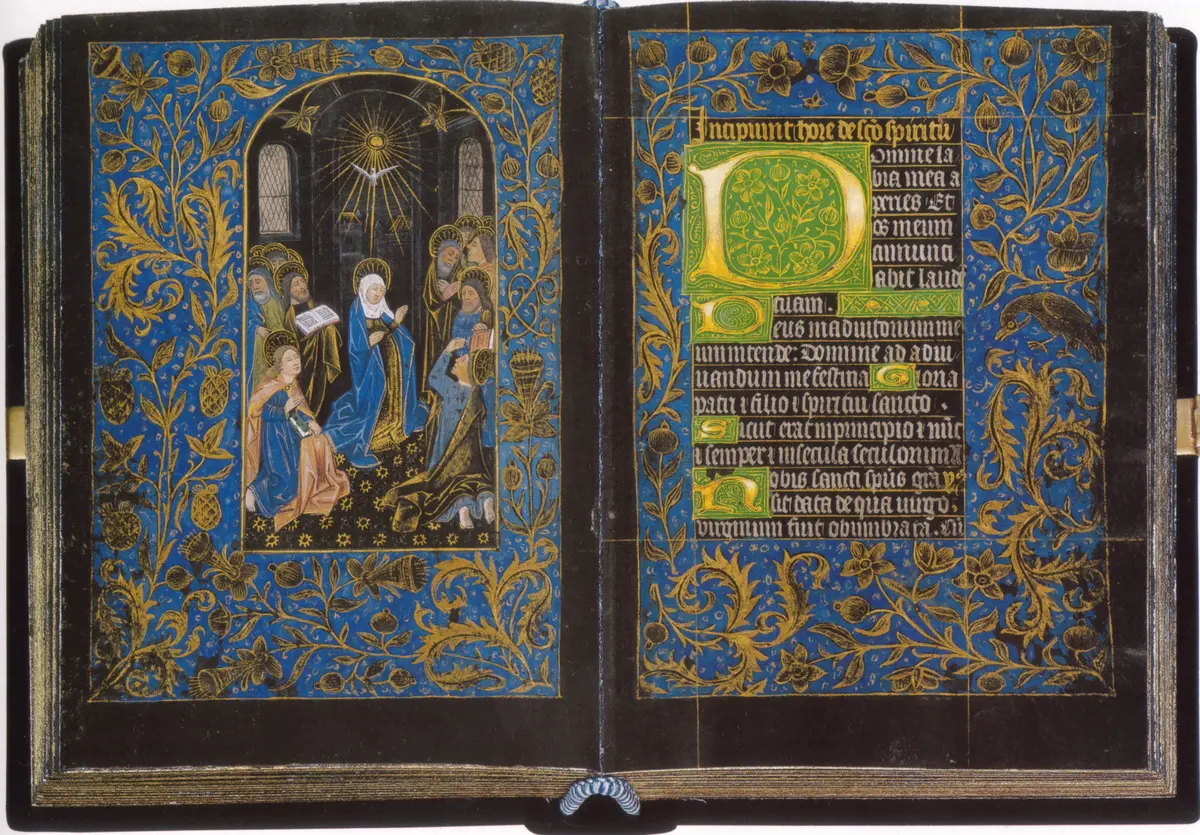 Incipiunt hore de sc̃o spiritu
Domine la
bia mea a
peries Et
os meum
annunci
abit laudē
tuam.
Deus in adiutorium me
um intende: Domine ad adiu
uandum me festina Gloria
patri ⁊ filio ⁊ spiritui sancto.
Sicut erat in principio ⁊ nūc
⁊ semper ⁊ in secula seculorum
Nobis sancti sp̃us gr̃a
sit data de qua uirgo
uirginum fuit obumbrata. Cū